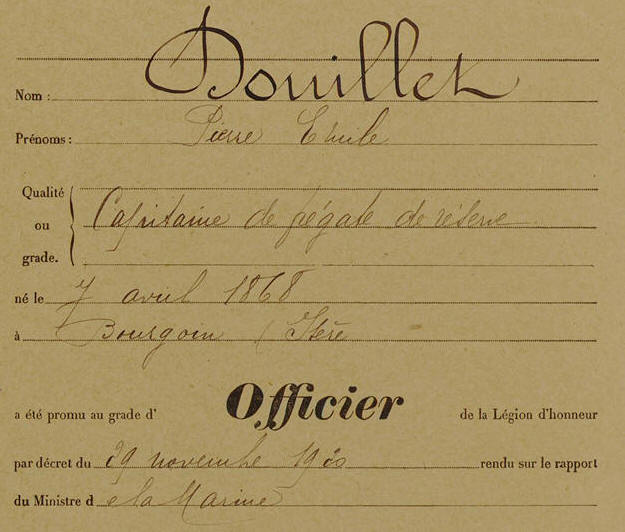 Nom : Douillet
Prénoms : Pierre Emile
Qualité
ou
grade. Capitaine de frégate de réserve
né le 7 avril 1868
à Bourgoin (Isère
a été promu au grade d' Officier de la Légion d'honneur
par décret du 29 novembre 1920 rendu sur le rapport
du Ministre de la Marine